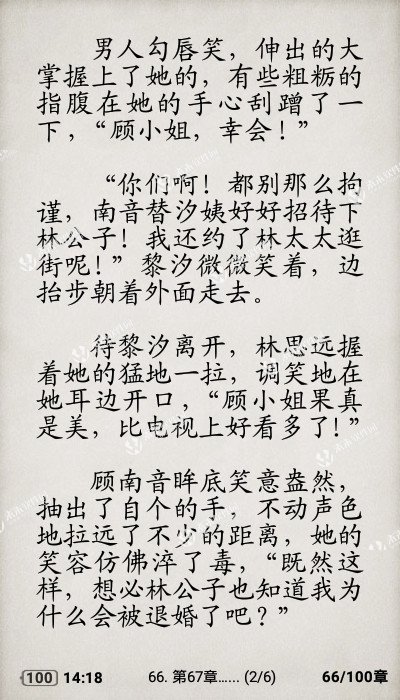 男人勾唇笑，伸出的大
掌握上了她的，有些粗粝的
指腹在她的手心刮蹭了一
下，“顾小姐，幸会！”
“你们啊！都别那么拘
谨，南音替汐姨好好招待下
林公子！我还约了林太太逛
街呢！”黎汐微微笑着，边
抬步朝着外面走去。
待黎汐离开，林思远握
着她的猛地一拉，调笑地在
她耳边开口，“顾小姐果真
是美，比电视上好看多了！”
顾南音眸底笑意盎然，
抽出了自个的手，不动声色
地拉远了不少的距离，她的
笑容仿佛淬了毒，“既然这
样，想必林公子也知道我为
什么会被退婚了吧？”
100 14:18 66. 第67章…... (2/6) 66/100章